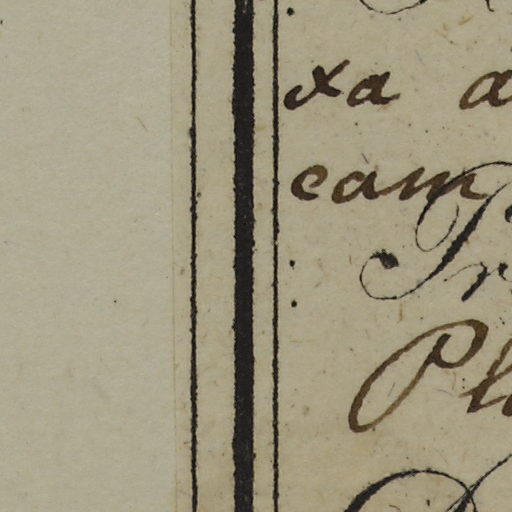 xa a
cam
Tr
Pl